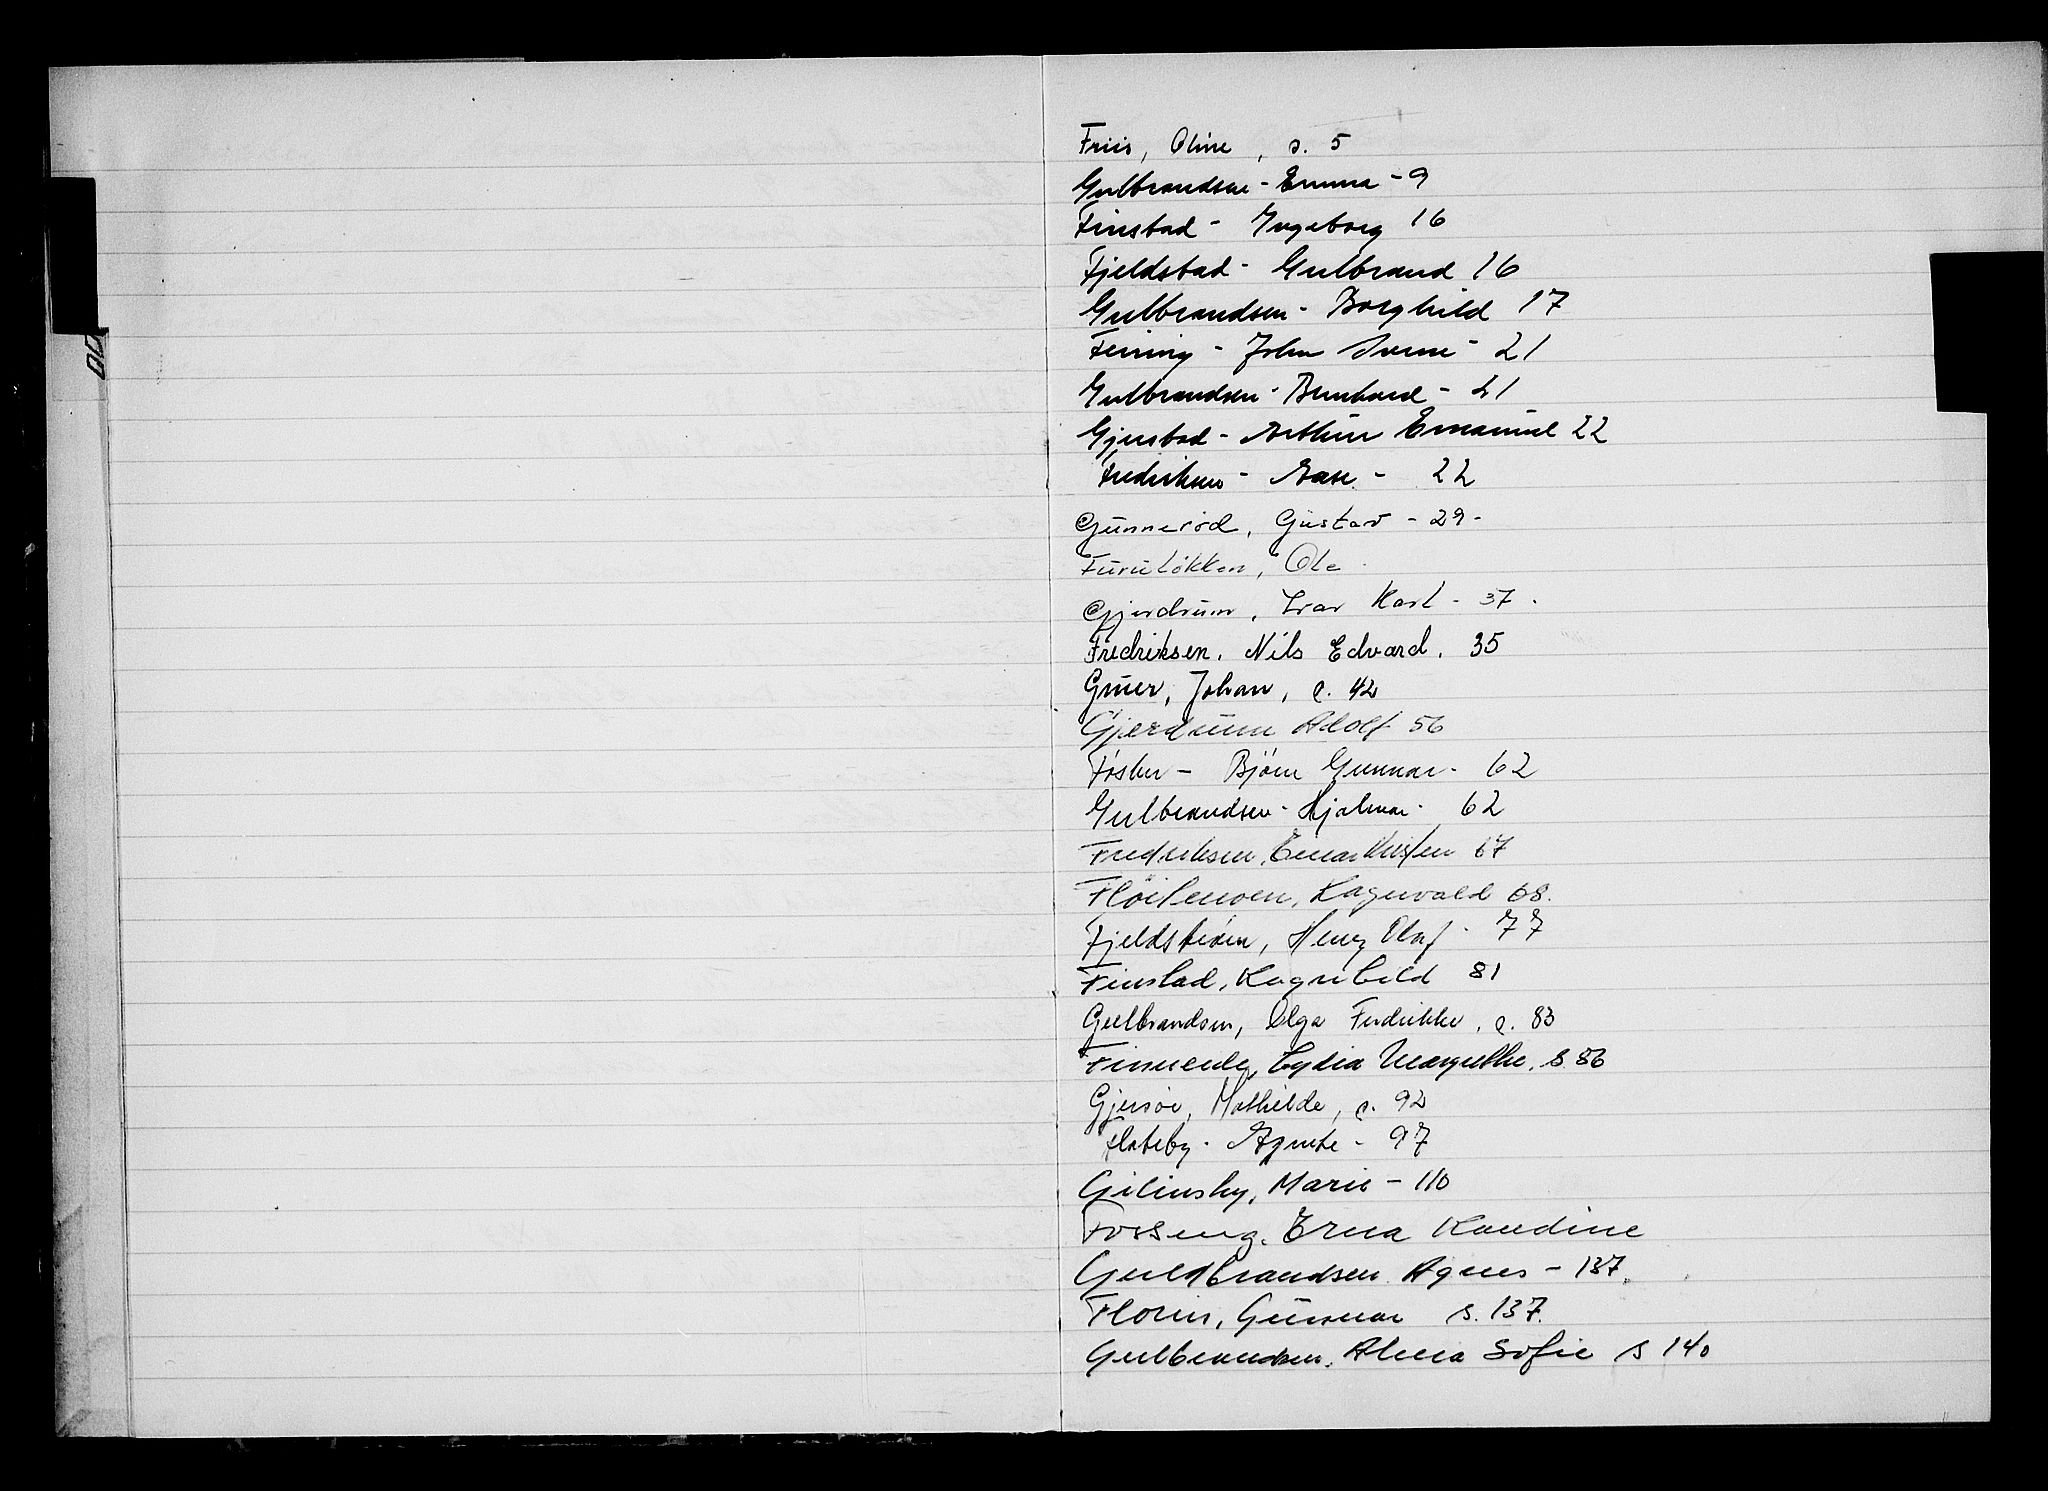 Friis, Oline, s. 5
Gulbrandsen - Emma - 9
Finstad - Ingeborg 16
Fjeldstad - Gulbrand 16
Gulbrandsen - Borghild 17
Feiring - John Sverre - 21
Gulbrandsen - Bernhard - 21
Gjerstad - Arthur Emanuel 22
Fredriksen - Aase - 22
Gunneröd, Gustav - 29 -
Furulökken, Ole
Gjerdrum, Ivar Karl - 37 -
Fredriksen, Nils Edvard. 35
Gruer, Johan, s. 42
Gjerdrum Adolf 56
Fosher - Björn Gunnar - 62
Gulbrandsen - Hjalmar - 62
Fredriksen, Einar Kristen 67
Flöitemoen, Ragnvald 68.
Fjeldström, Henry Olaf - 77
Finstad, Ragnhild 81
Gulbrandsen, Olga Fredrikke, s. 83
Lydia Margrethe, s. 86
Gjersöe, Mathilde, s. 92
Flateby - Agnete - 97
Gilinsky, Marie - 110
Fosseng, Erna Kandine
Guldbrandsen Agnes - 137.
Florin, Gunnar s. 137.
Gulbrandsen, Alma Sofie s 140